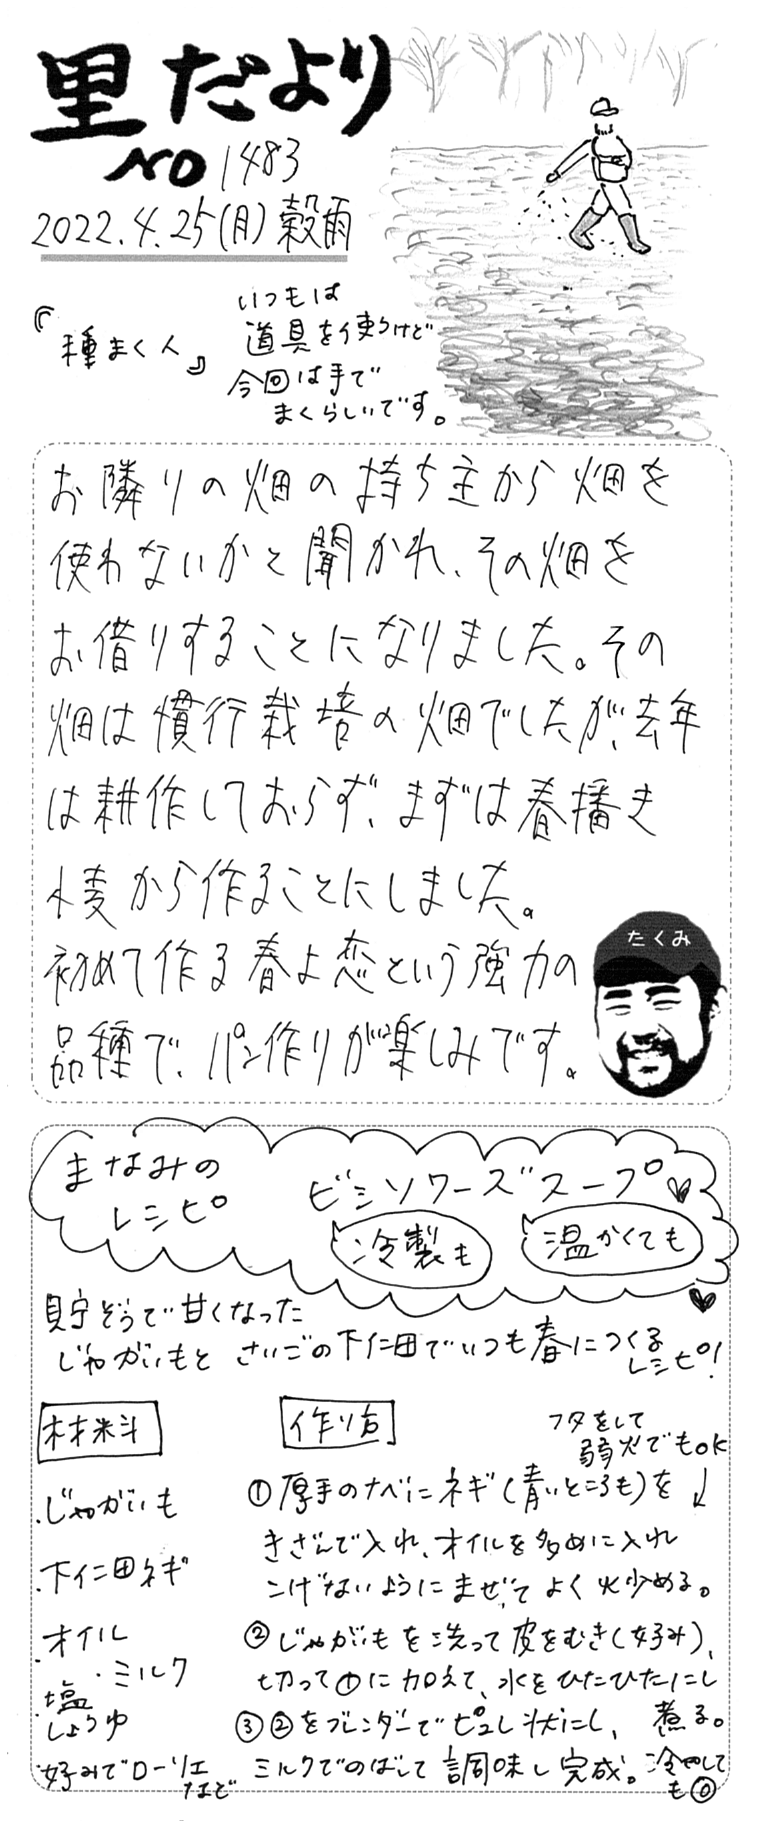 里だより
NO 1483
2022.4.25(月)穀雨
『種まく人』
いつもは
道具を使うけど
今回は手で
まくらしいです。
お隣りの畑の持ち主から畑を
使わないかと聞かれ、その畑を
お借りすることになりました。その
畑は慣行栽培の畑でしたが、去年
は耕作しておらず、まずは春播き
小麦から作ることにしました。
初めて作る春よ恋という強力の
品種で、パン作りが楽しみです。
たくみ
まなみの
レシピ
ビシソワーズスープ
冷製も
温かくても
貯ぞうで甘くなった
じゃがいもと さいごの下仁田でいつも春につくる
レシピ!
材料
・じゃがいも
・下仁田ネギ
・オイル
・ミルク
・塩
しょうゆ
・好みでローリエ
など
作り方
フタをして
弱火でもOK
①厚手のナベにネギ(青いところも)を
きざんで入れ、オイルを多めに入れ
こげないようにまぜてよく炒める。
②じゃがいもを洗って皮をむき(好み)、
切って①に加えて、水をひたひたにし
煮る。
③②をブレンダーでピュレ状にし、
ミルクでのばして調味し完成。冷やして
も◎